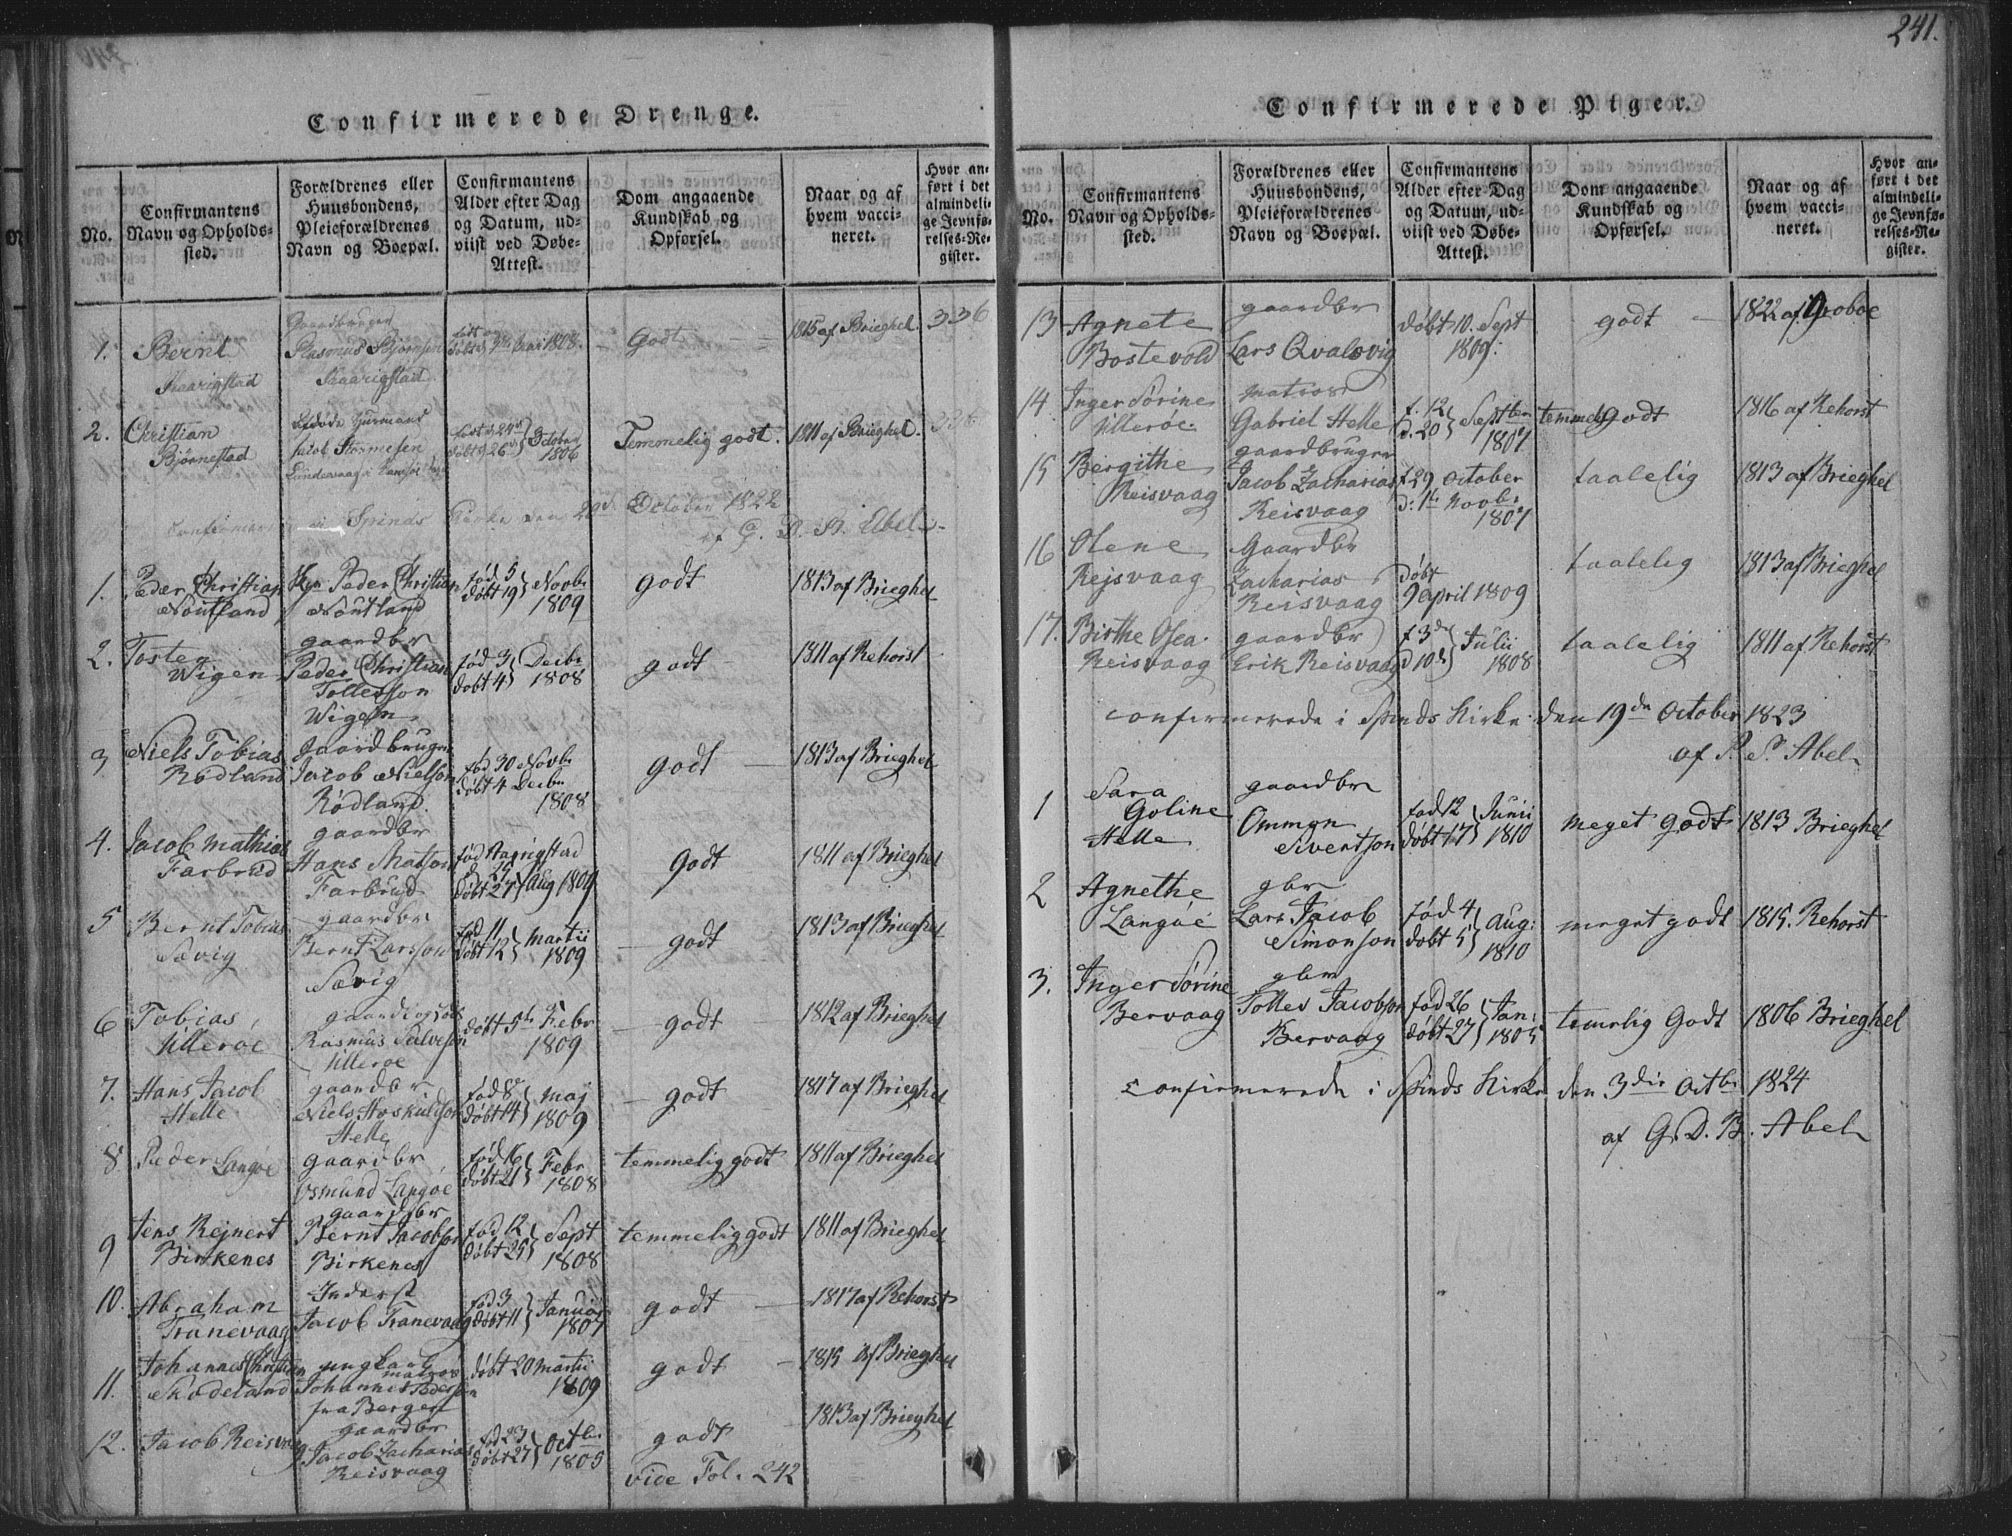 241.
Confirmerede Drenge.
No.
Confirmantens Navn og Opholds-sted.
Forældrenes eller Huusbondens, Pleieforældrenes Navn og Boepæl.
Confirmantens Alder efter Dag og Datum, ud-viist ved Døbe-Attest.
Dom angaaende Kundskab og Opførsel.
Naar og af hvem vacci-neret.
Hvor an-ført i det almindeli-ge Jevnfø-relses-Re-gister.
1. Bernt
Gaardbruger
Rasmus Bjørnsen
Godt
1815 af Brieghel.
336
Skaarigstad
Skaarigstad
2. Christian
Bjørnestad
Jacob
født d 24de
døbt d 26de } October 1806
Temmelig godt.
1811 af Brieghel.
336
i Spinds Kirke den 20de October 1822
af G. D. B. Abel.
1. Peder Christian
Noutland
Peder Christian
Noutland
fød 5
døbt 19 } Novbr 1809
godt
1813 af Brieghel
2. Tosten
Wigen
gaardbr
Peder Christian
Tollefson
Wigen
fød 3
døbt 4 } Decbr 1808
godt
1811 af Rehorst
3. Niels Tobias
Rødland
Gaardbruger
Jacob Nielson
Rødland.
fød 30 Novbr
døbt 4 Decbr
1808
godt
1813 af Brieghel
4. Jacob Mathias
Farbrud
gaardbr
Hans
Farbrud
døbt 27 } Aug 1809
godt
1811 af Brieghel
5 Bernt Tobias
Sævig
gaardbr
Bernt Larsson
Sævig
fød 11
døbt 12 } Martii 1809
godt
1813 af Brieghel
6 Tobias
Ullerøe
Rasmus Salveson
Ullerøe
døbt 5te Febr
1809
godt
1812 af Brieghel
7. Hans Jacob
Helle
gaardbr
Niels
Helle
fød 8
døbt 14 } Maj 1809
godt
1817 af Brieghel
8 Peder Langøe
gaardbr
Osmund Langøe
fød 16
døbt 21 } Febr 1808
temmelig godt
1811 af Brieghel
9 Jens Rejnert
Birkenes
gaardbr
Bernt Jacobson
Birkenes
fød 12
døbt 25 } Sept 1808
temmelig godt
1811 af Brieghel
10. Abraham
Tranevaag
Inderst
Jacob Tranevaag
fød 3
døbt 11 } Januar 1807
godt
1817 af Rehorst
11. Johannes Christian
Skodeland
ungkarl
matros
Johannes Pederson
fra Bergen
døbt 20 Martii
1809
godt
1815 af Brieghel
12. Jacob Reisvaag
gaardbr
Jacob Zacharias
Reisvaag
fød 23
døbt 27 } Octbr 1805
godt
1813 af Brieghel
vide Fol. 242
Confirmerede Piger.
No.
Confirmantens Navn og Opholds-sted.
Forældrenes eller Huusbondens, Pleieforældrenes Navn og Boepæl.
Confirmantens Alder efter Dag og Datum, ud-viist ved Døbe-Attest.
Dom angaaende Kundskab og Opførsel.
Naar og af hvem vacci-neret.
Hvor an-ført i det almindeli-ge Jevnfø-relses-Re-gister.
13 Agnete
Bostevold
gaardbr
Lars Qvalsvig
døbt 10. Sept
1809.
godt
1822 af Groboe
14 Inger Sørine
Ullerøe.
matros
Gabriel Helle
f. 12
d. 20 } Septbr 1807
temmel godt
1816 af Rehorst
15 Bergithe
Reisvaag
gaardbruger
Jacob Zacharias
Reisvaag
f 29 October
d. 1te Novbr
1807
taalelig
1813 af Brieghel
16 Olene
Rejsvaag
Gaardbr
Zacharias
Reisvaag
døbt
9 April 1809
taalelig
1813 af Brieghel
17. Birthe Osea
Reisvaag
gaardbr
Erik Reisvaag
f 3de
d 10de } Julii 1808
taalelig
1811 af Rehorst
confirmerede i Spinds Kirke den 19de October 1823
af P. P. Abel
1 Sara
Goline
Helle
gaardbr
Ommon
Sivertson
fød 12
døbt 17 } Junii 1810
meget godt
1813 Brieghel
2 Agnethe
Langøe
gbr
Lars Jacob
Simonson
fød 4
døbt 5 } Aug: 1810
meget godt
1815. Rehorst
3. Inger Sørine
Bervaag
gbr
Tollev Jacobson
Bervaag
fød 26
døbt 27 } Jan: 1805
temelig Godt
1806 Brieghel
confirmerede i Spinds Kirke den 3die Octbr 1824
af G. D. B. Abel